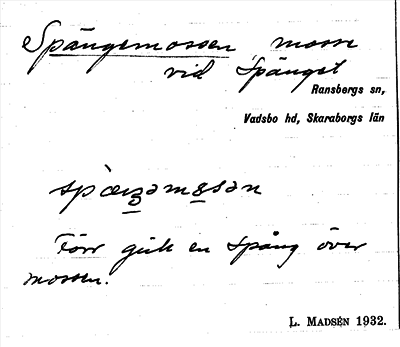 Spångemossen, mosse
vid Spånget
Ransbergs sn,
Vadsbo hd, Skaraborgs län
Förr gick en spång över
mossen.
L. MADSÉN 1932.